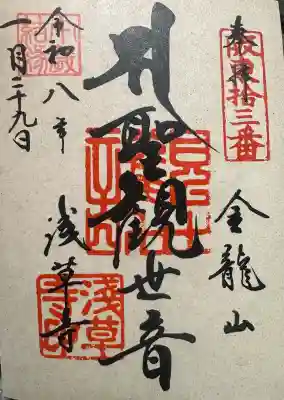 奉拝
坂東拾三番
金龍山
聖観世音
浅草寺
浅草寺印
令和八年
一月二十九日